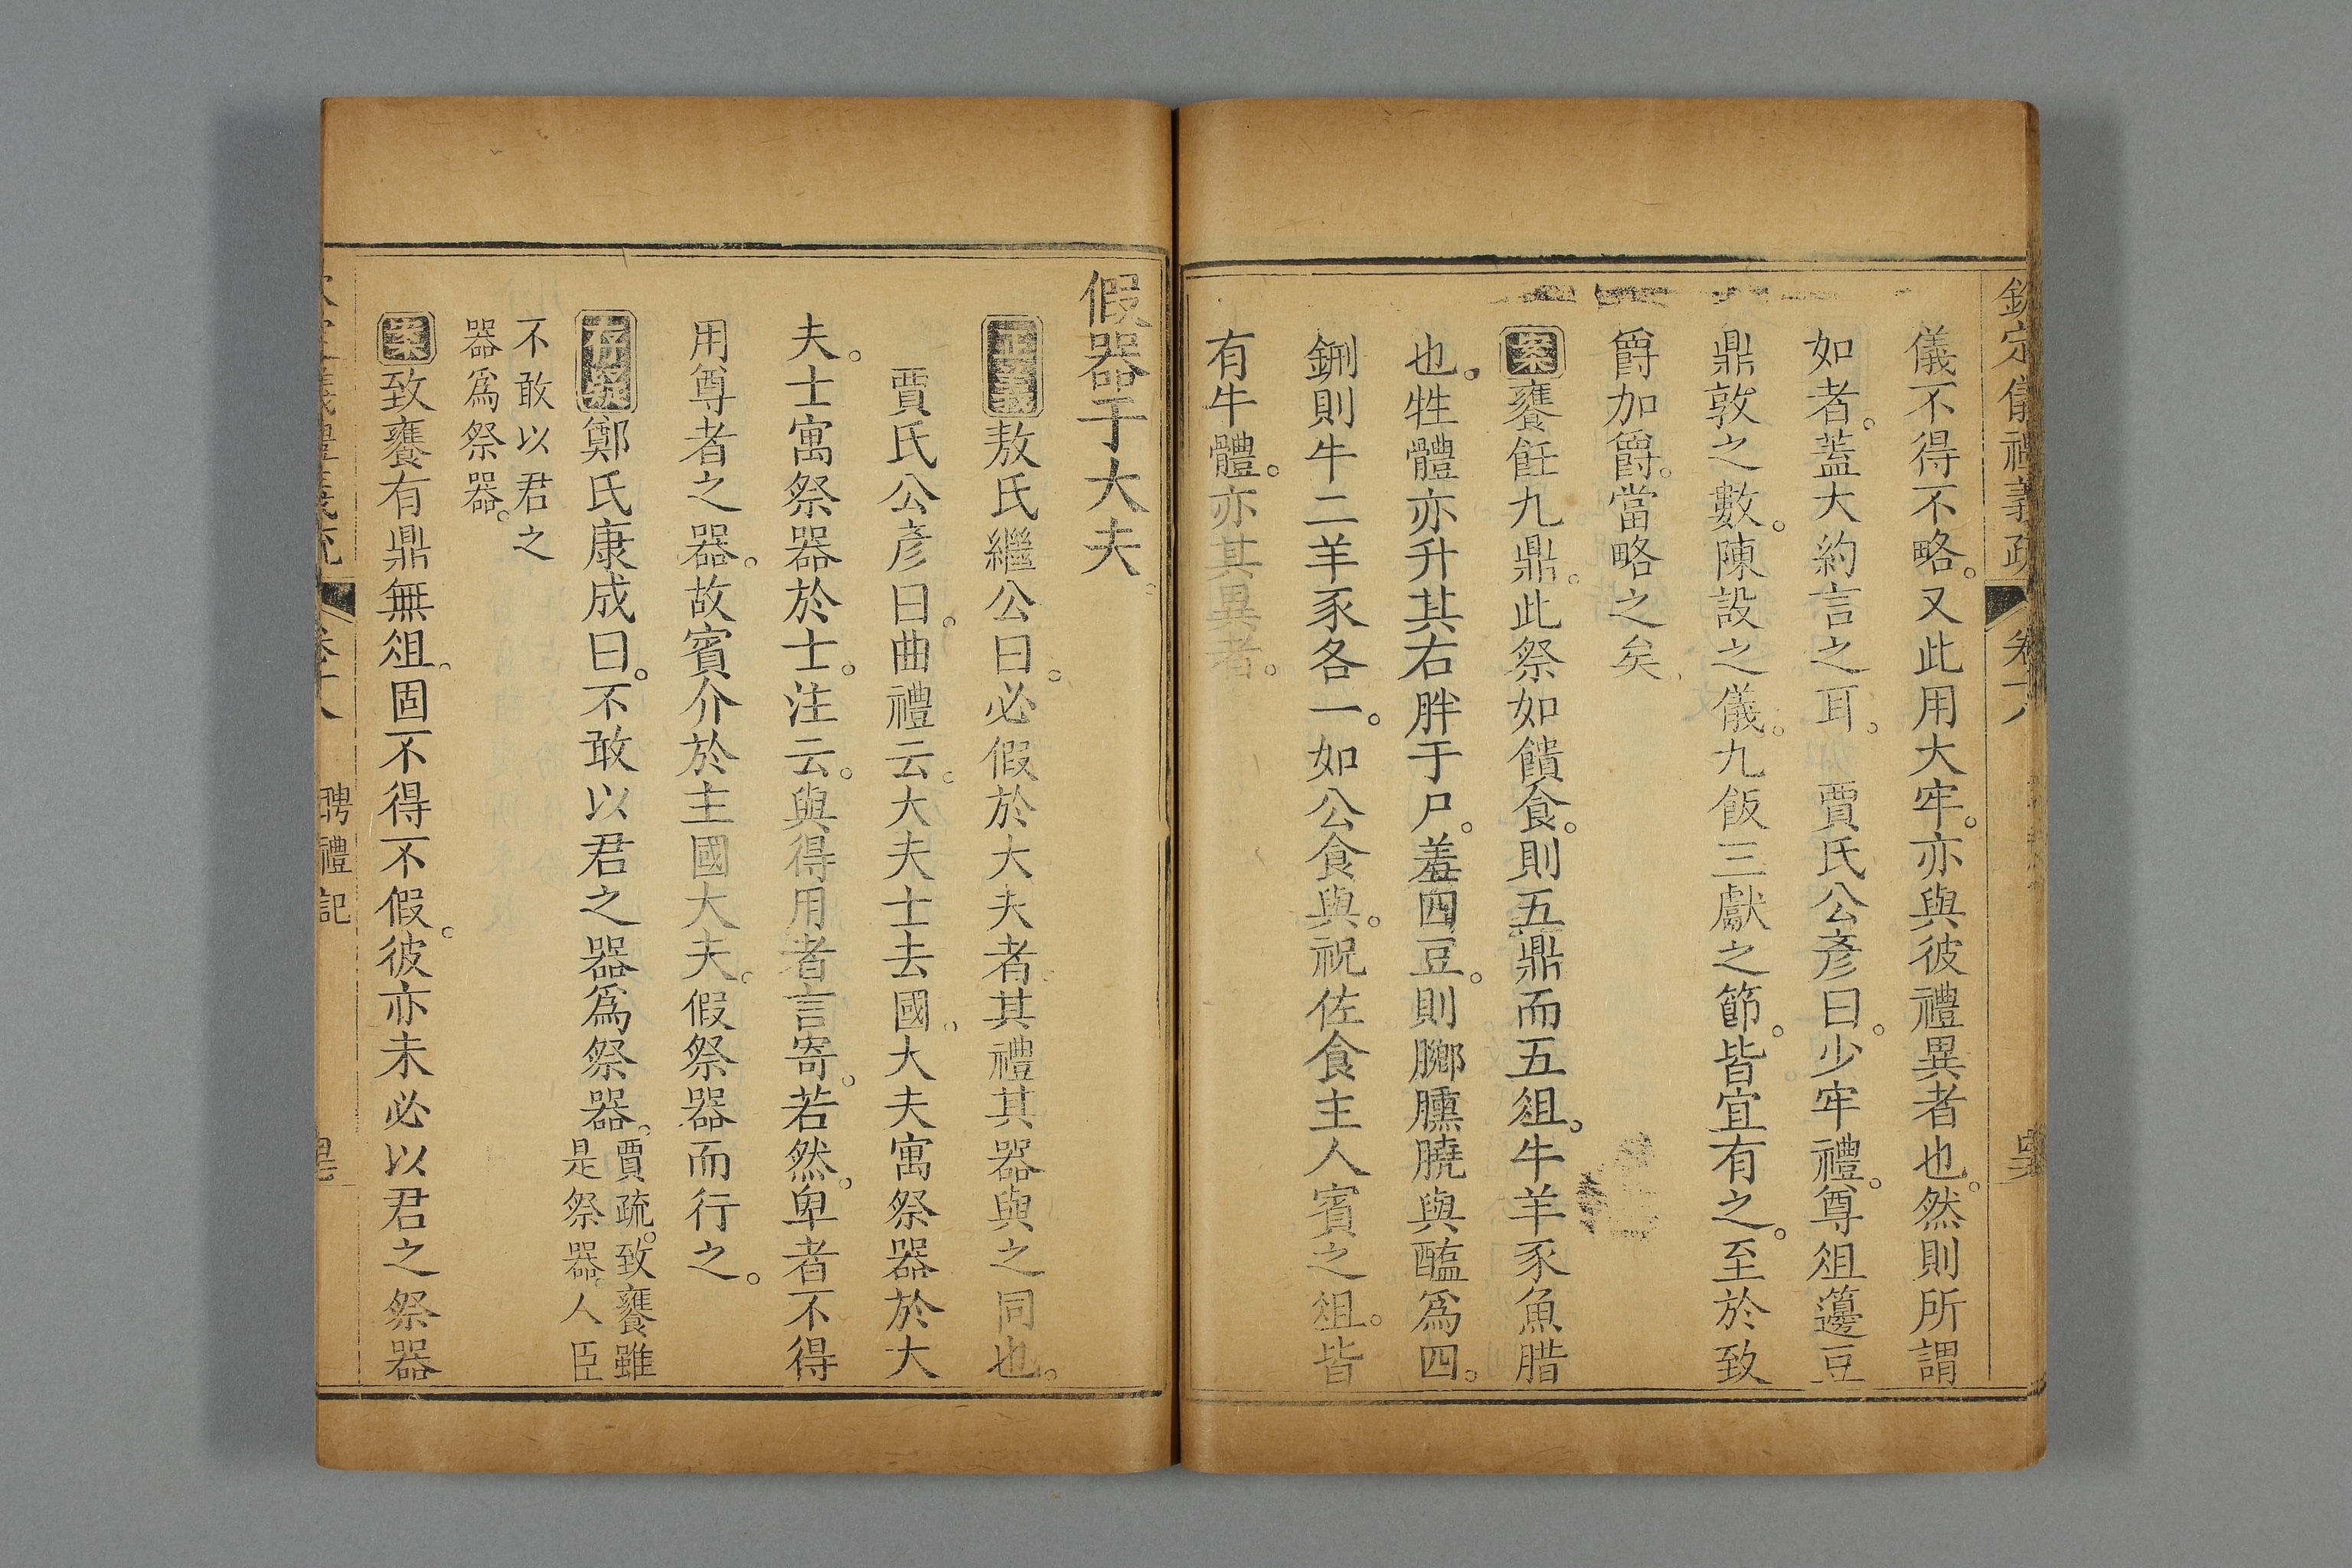 欽定儀禮義疏 卷十八
儀不得不略。又此用大牢。亦與彼禮異者也。然則所謂
如者。蓋大約言之耳。賈氏公彥曰。少牢禮。尊俎籩豆
鼎敦之數。陳設之儀。九飯三獻之節。皆宜有之。至於致
爵加爵。當略之矣
案饔飪九鼎。此祭如饋食。則五鼎而五俎。牛羊豕魚腊
也。牲體亦升其右胖于尸。羞四豆。則膷臐膮與醢為四。
鉶則牛二羊豕各一。如公食與。祝佐食主人賓之俎。皆
有牛體。亦其異者。
假器于大夫。
正義敖氏繼公曰。必假於大夫者。其禮其器與之同也。
賈氏公彥曰。曲禮云。大夫士去國。大夫寓祭器於大
夫。士寓祭器於士。注云。與得用者言寄。若然。卑者不得
用尊者之器。故賓介於主國大夫。假祭器而行之。
存疑鄭氏康成曰。不敢以君之器為祭器。賈疏。致饔雖
是祭器。人臣
不敢以君之
器為祭器。
案致饔有鼎無俎。固不得不假。彼亦未必以君之祭器
聘禮記